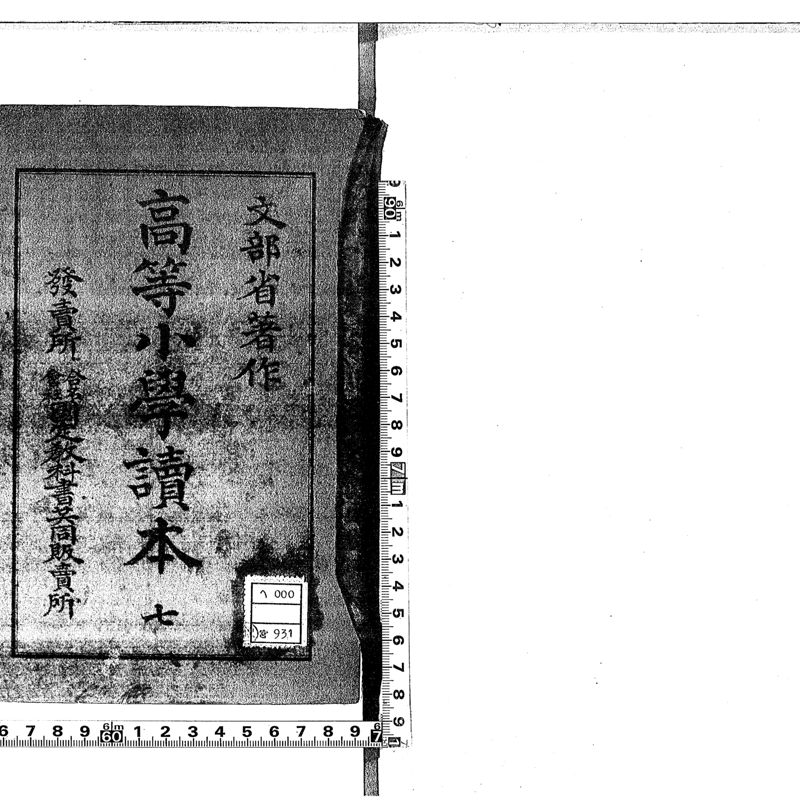 文部省著作
高等小學讀本 七
發賣所 合名會社 國定教科書共同販賣所
ヘ 000
931
6 7 8 9 60 1 2 3 4 5 6 7 8 9 7
90 1 2 3 4 5 6 7 8 9 1 2 3 4 5 6 7 8 9